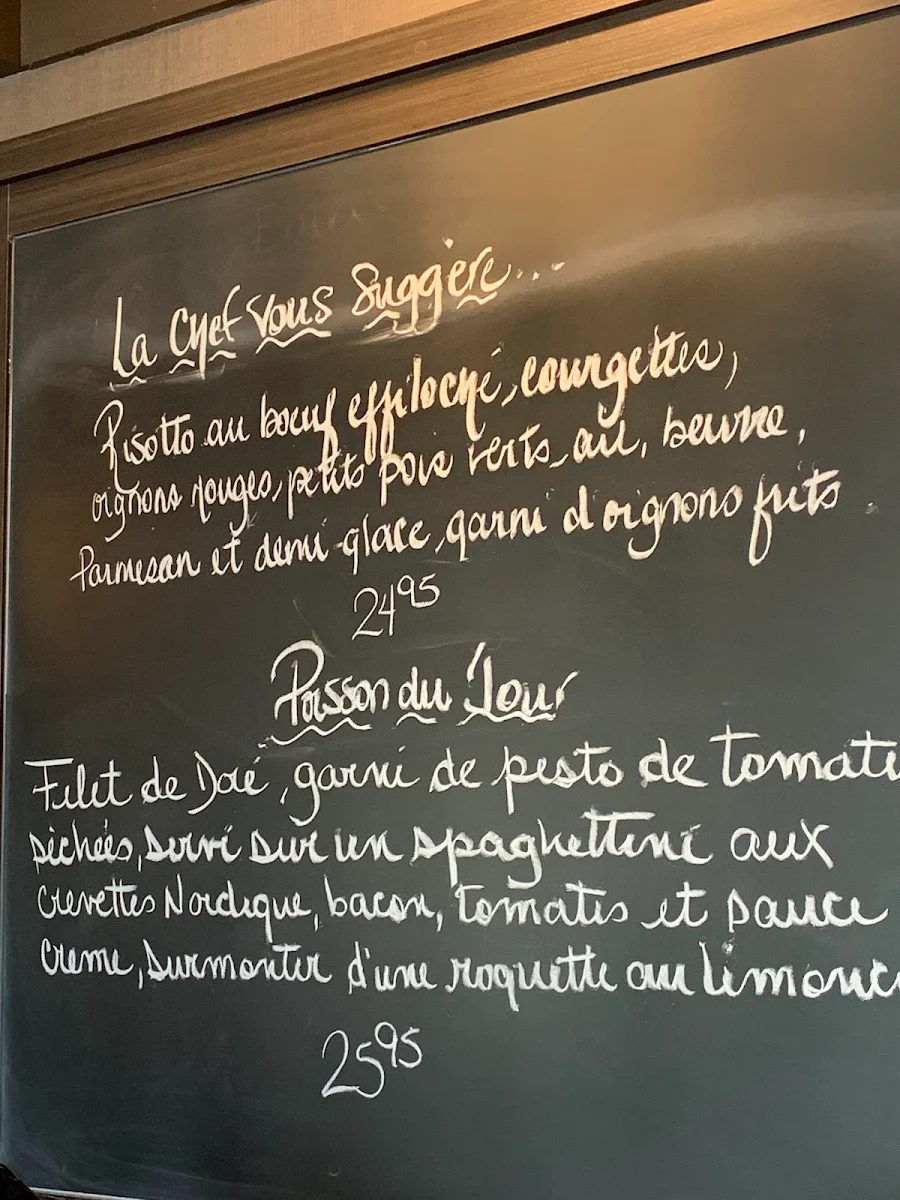 La Chef vous Suggère...
Risotto au boeuf effiloché, courgettes,
oignons rouges, petits pois verts, ail, beurre,
Parmesan et demi-glace, garni d'oignons frits
24 95
Poisson du Jour
Filet de Doré, garni de pesto de tomate
séchées, servi sur un spaghettini aux
crevettes Nordique, bacon, tomates et sauce
creme, surmonter d'une roquette au limonc
25 95